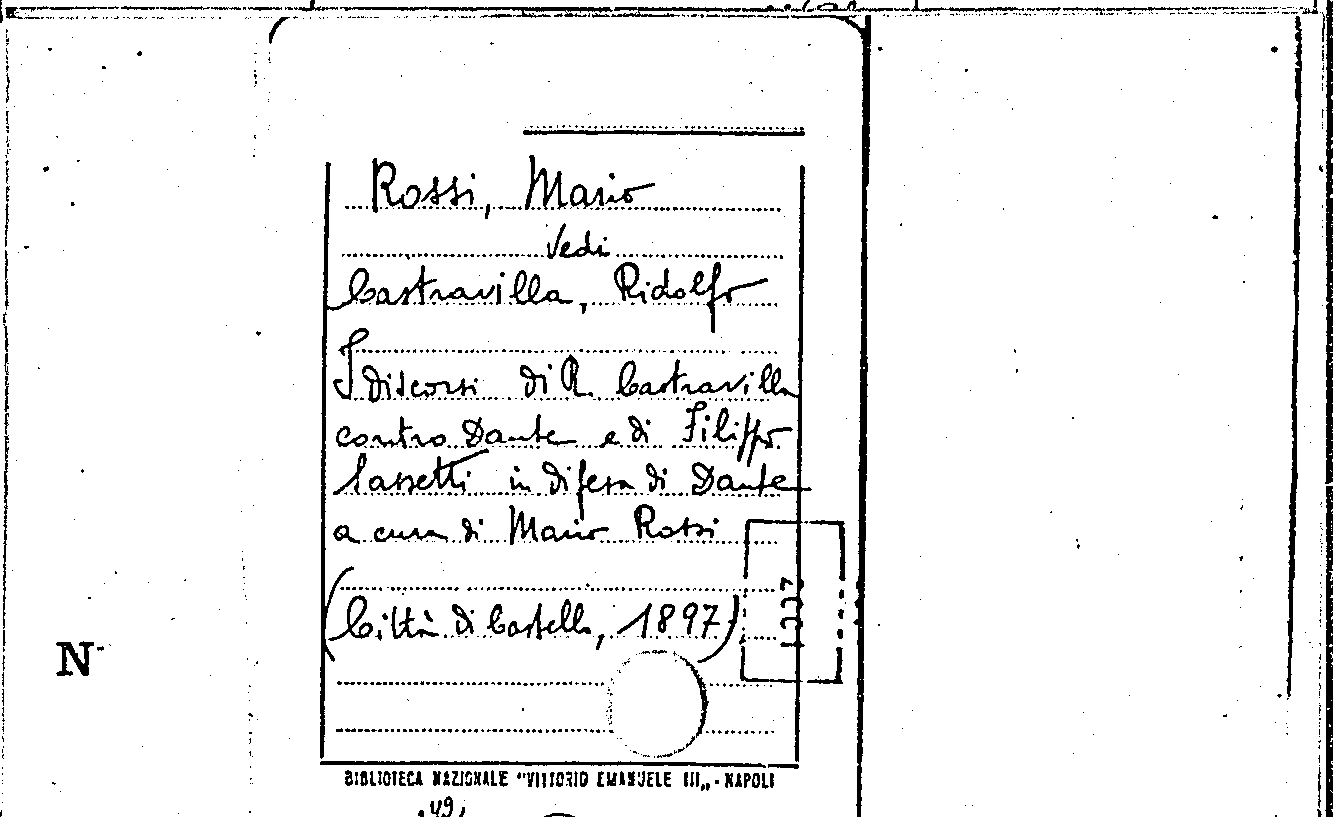 Rossi, Mario
Vedi
Castravilla, Ridolfo
I discorsi di R. Castravilla
contro Dante e di Filippo
Sassetti in difesa di Dante
a cura di Mario Rossi
(Città di Castello, 1897)
N
BIBLIOTECA NAZIONALE "VITTORIO EMANUELE III„ - NAPOLI